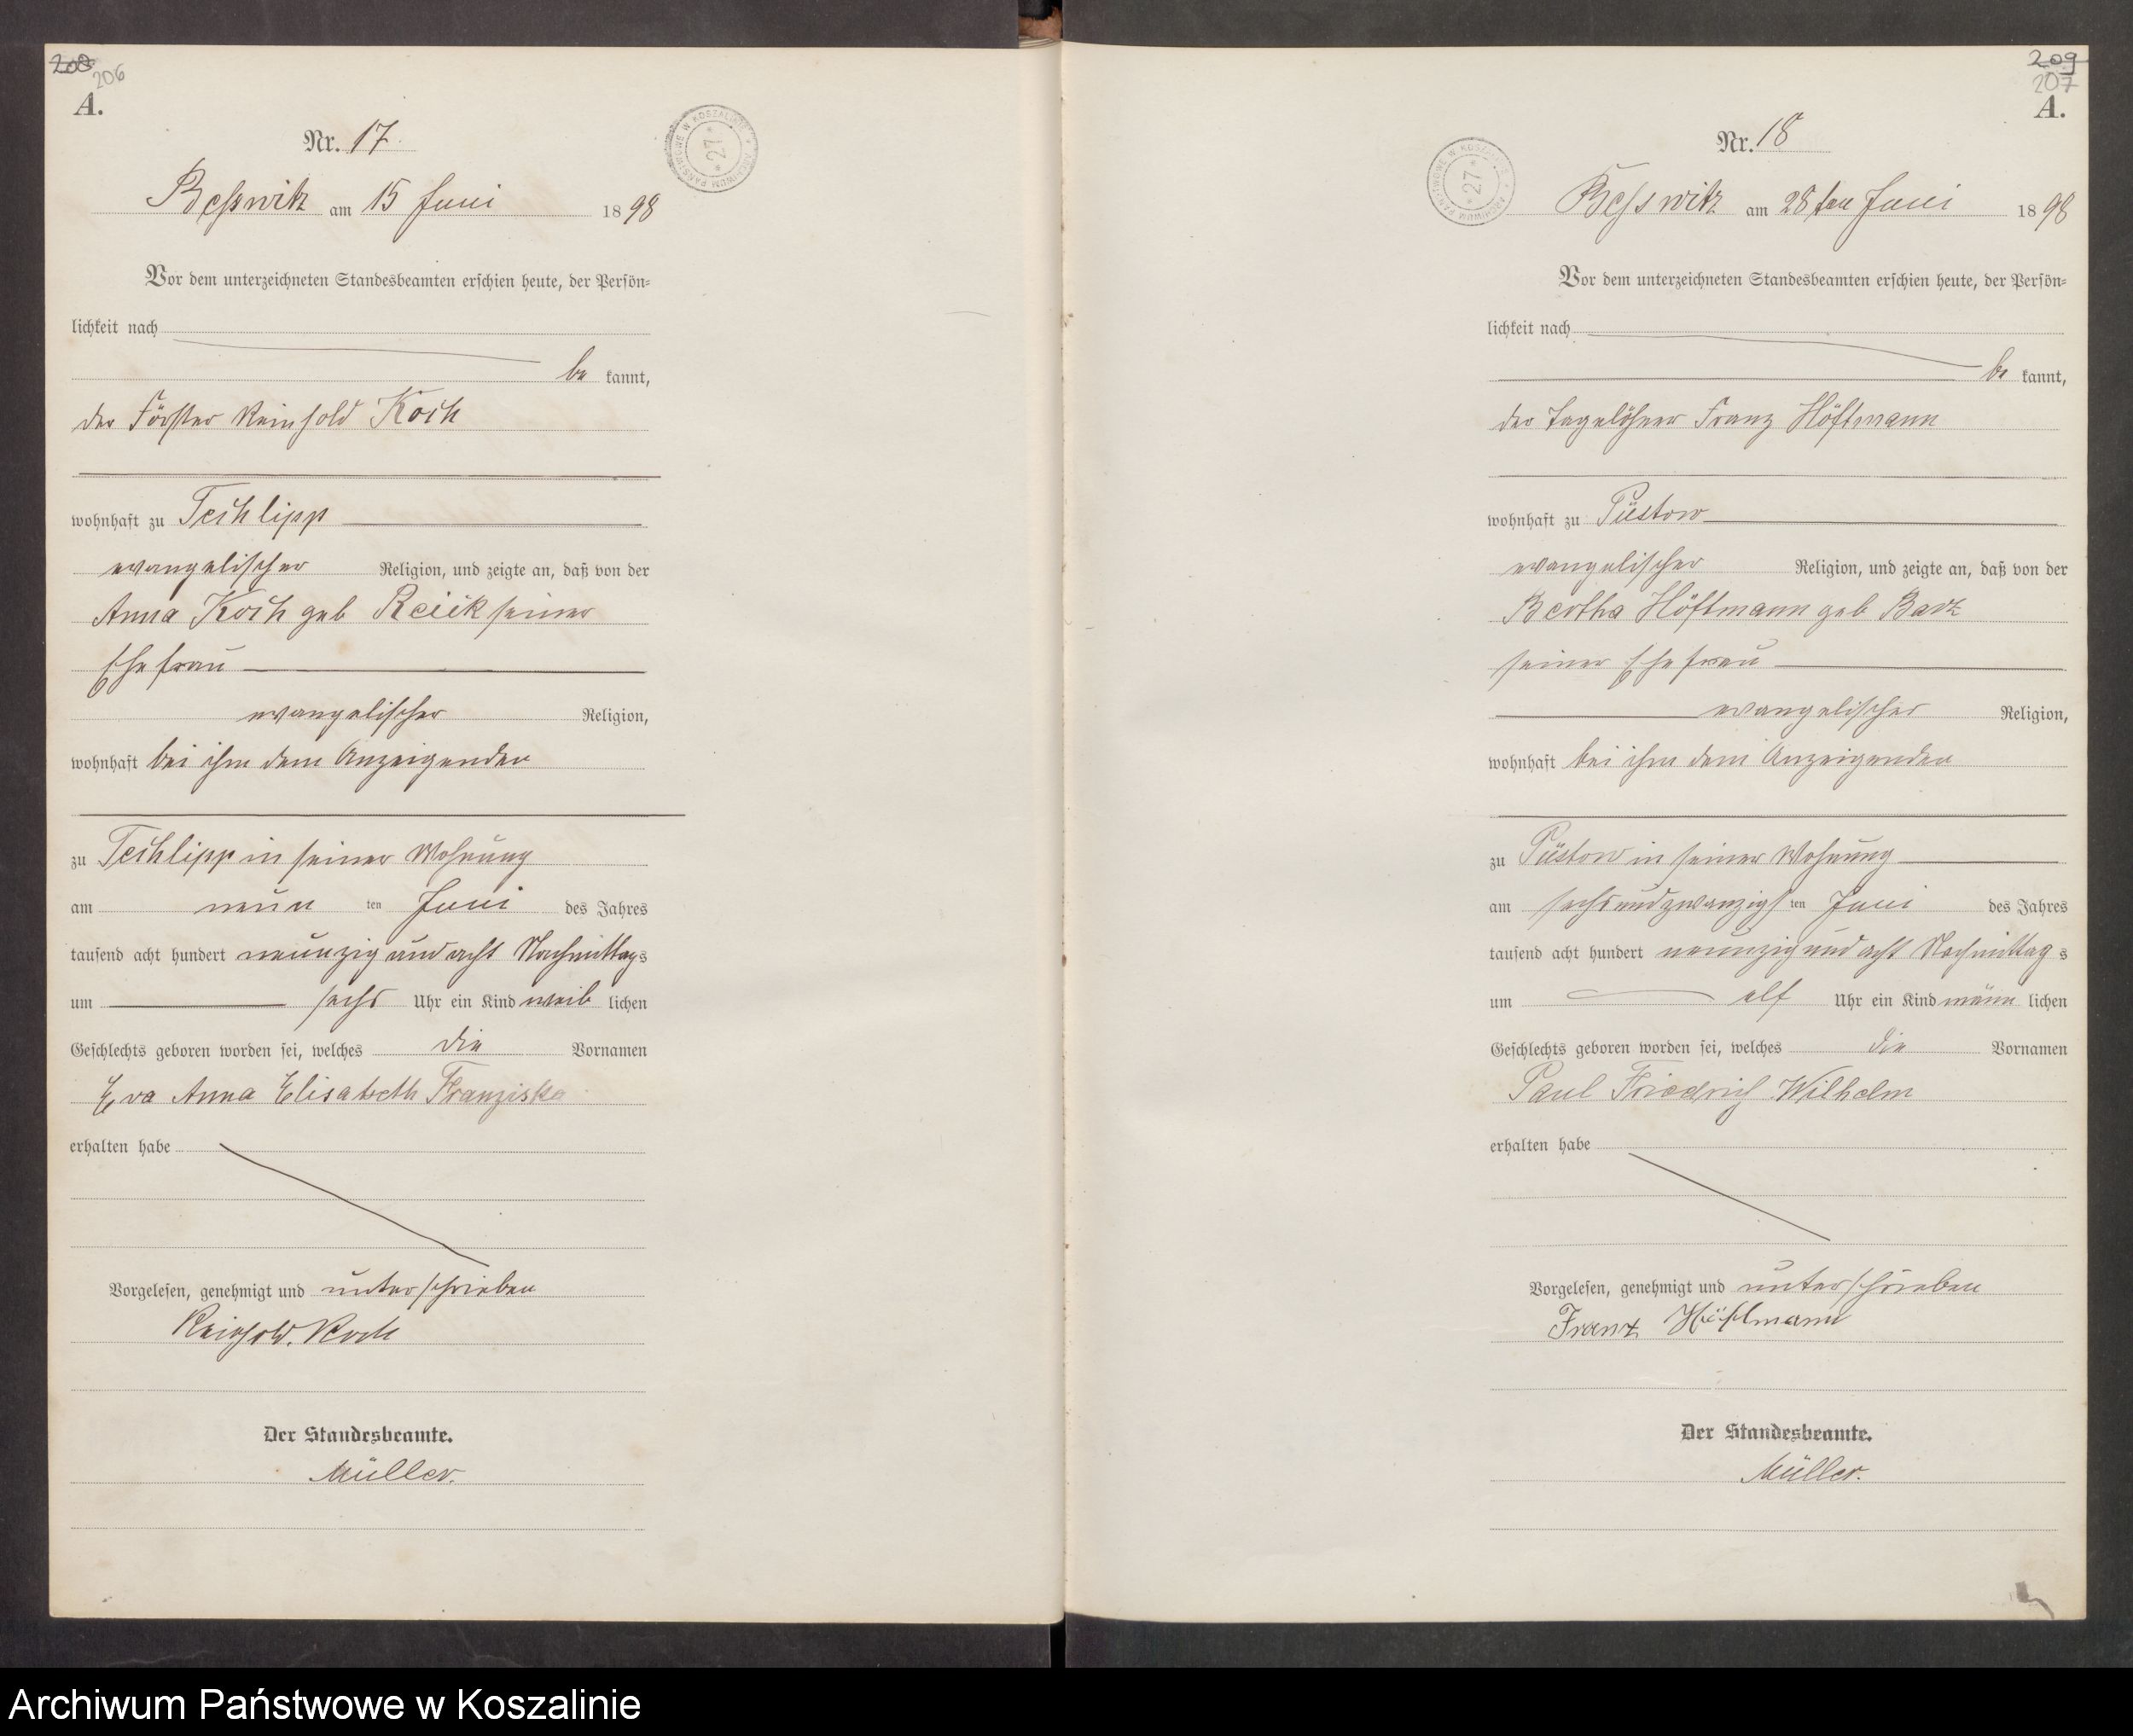 208
206
A.
Nr. 17.
Beßwitz am 15 Juni 1898
Vor dem unterzeichneten Standesbeamten erschien heute, der Persön-
lichkeit nach
be kannt,
der Förster Reinhold Koch
wohnhaft zu Techlipp
evangelischer Religion, und zeigte an, daß von der
Anna Koch geb seiner
Ehefrau
evangelischer Religion,
wohnhaft bei ihm dem Anzeigenden
zu Techlipp in seiner Wohnung
am neun ten Juni des Jahres
tausend acht hundert neunzig und acht Nachmittags
um sechs Uhr ein Kind weib lichen
Geschlechts geboren worden sei, welches die Vornamen
Eva Anna Elisabeth Franziska
erhalten habe
Vorgelesen, genehmigt und unterschrieben
Reinhold Koch
Der Standesbeamte.
Müller.
ARCHIWUM PAŃSTWOWE W KOSZALINIE
* 27 *
209
207
A.
Nr. 18
Beßwitz am 28ten Juni 1898
Vor dem unterzeichneten Standesbeamten erschien heute, der Persön-
lichkeit nach
be kannt,
der Tagelöhner Franz Höftmann
wohnhaft zu Püstow
evangelischer Religion, und zeigte an, daß von der
Bertha Höftmann geb Barz
seiner Ehefrau
evangelischer Religion,
wohnhaft bei ihm dem Anzeigenden
zu Püstow in seiner Wohnung
am sechsundzwanzigsten Juni des Jahres
tausend acht hundert neunzig und acht Nachmittag s
um elf Uhr ein Kind männ lichen
Geschlechts geboren worden sei, welches die Vornamen
Paul Friedrich Wilhelm
erhalten habe
Vorgelesen, genehmigt und unterschrieben
Franz Höftmann
Der Standesbeamte.
Müller.
ARCHIWUM PAŃSTWOWE W KOSZALINIE
* 27 *
Archiwum Państwowe w Koszalinie